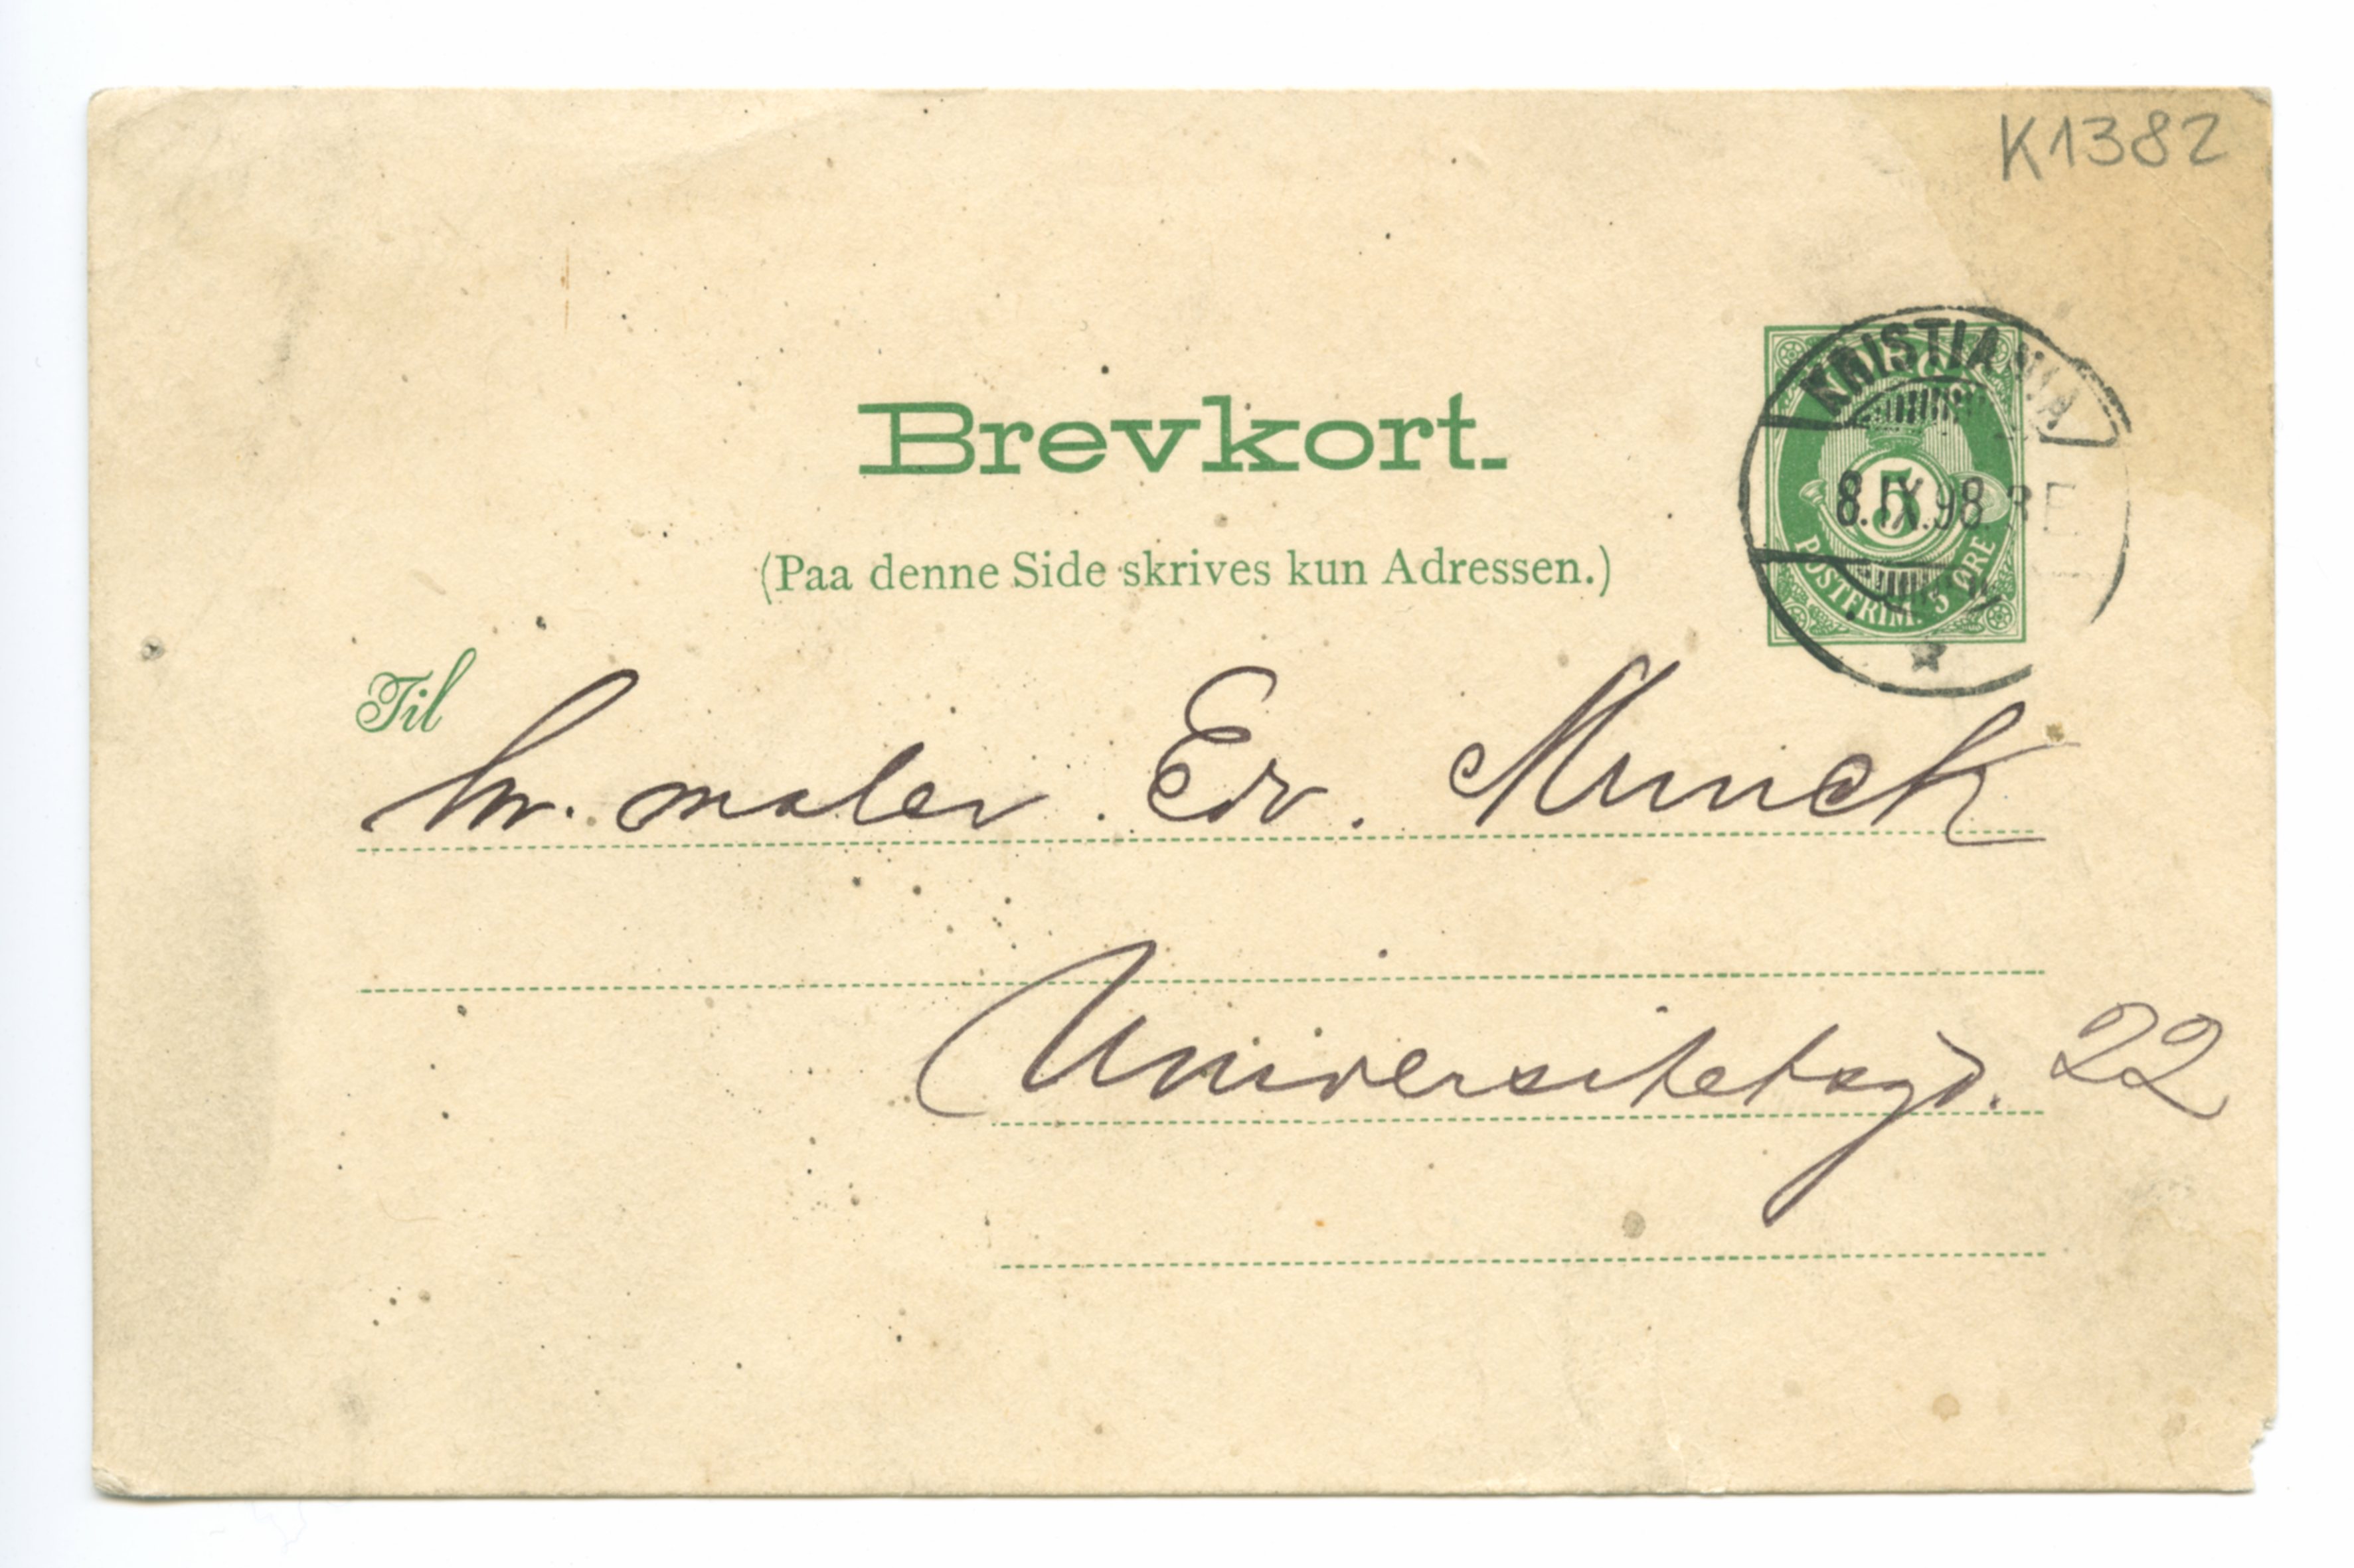 K1382
Brevkort.
(Paa denne Side skrives kun Adressen.)
KRISTIANIA
8.IX.98. 3 E.
5
POSTFRIM. 5 ØRE
Til
hr. maler Edv. Munck
Universitetsgd. 22